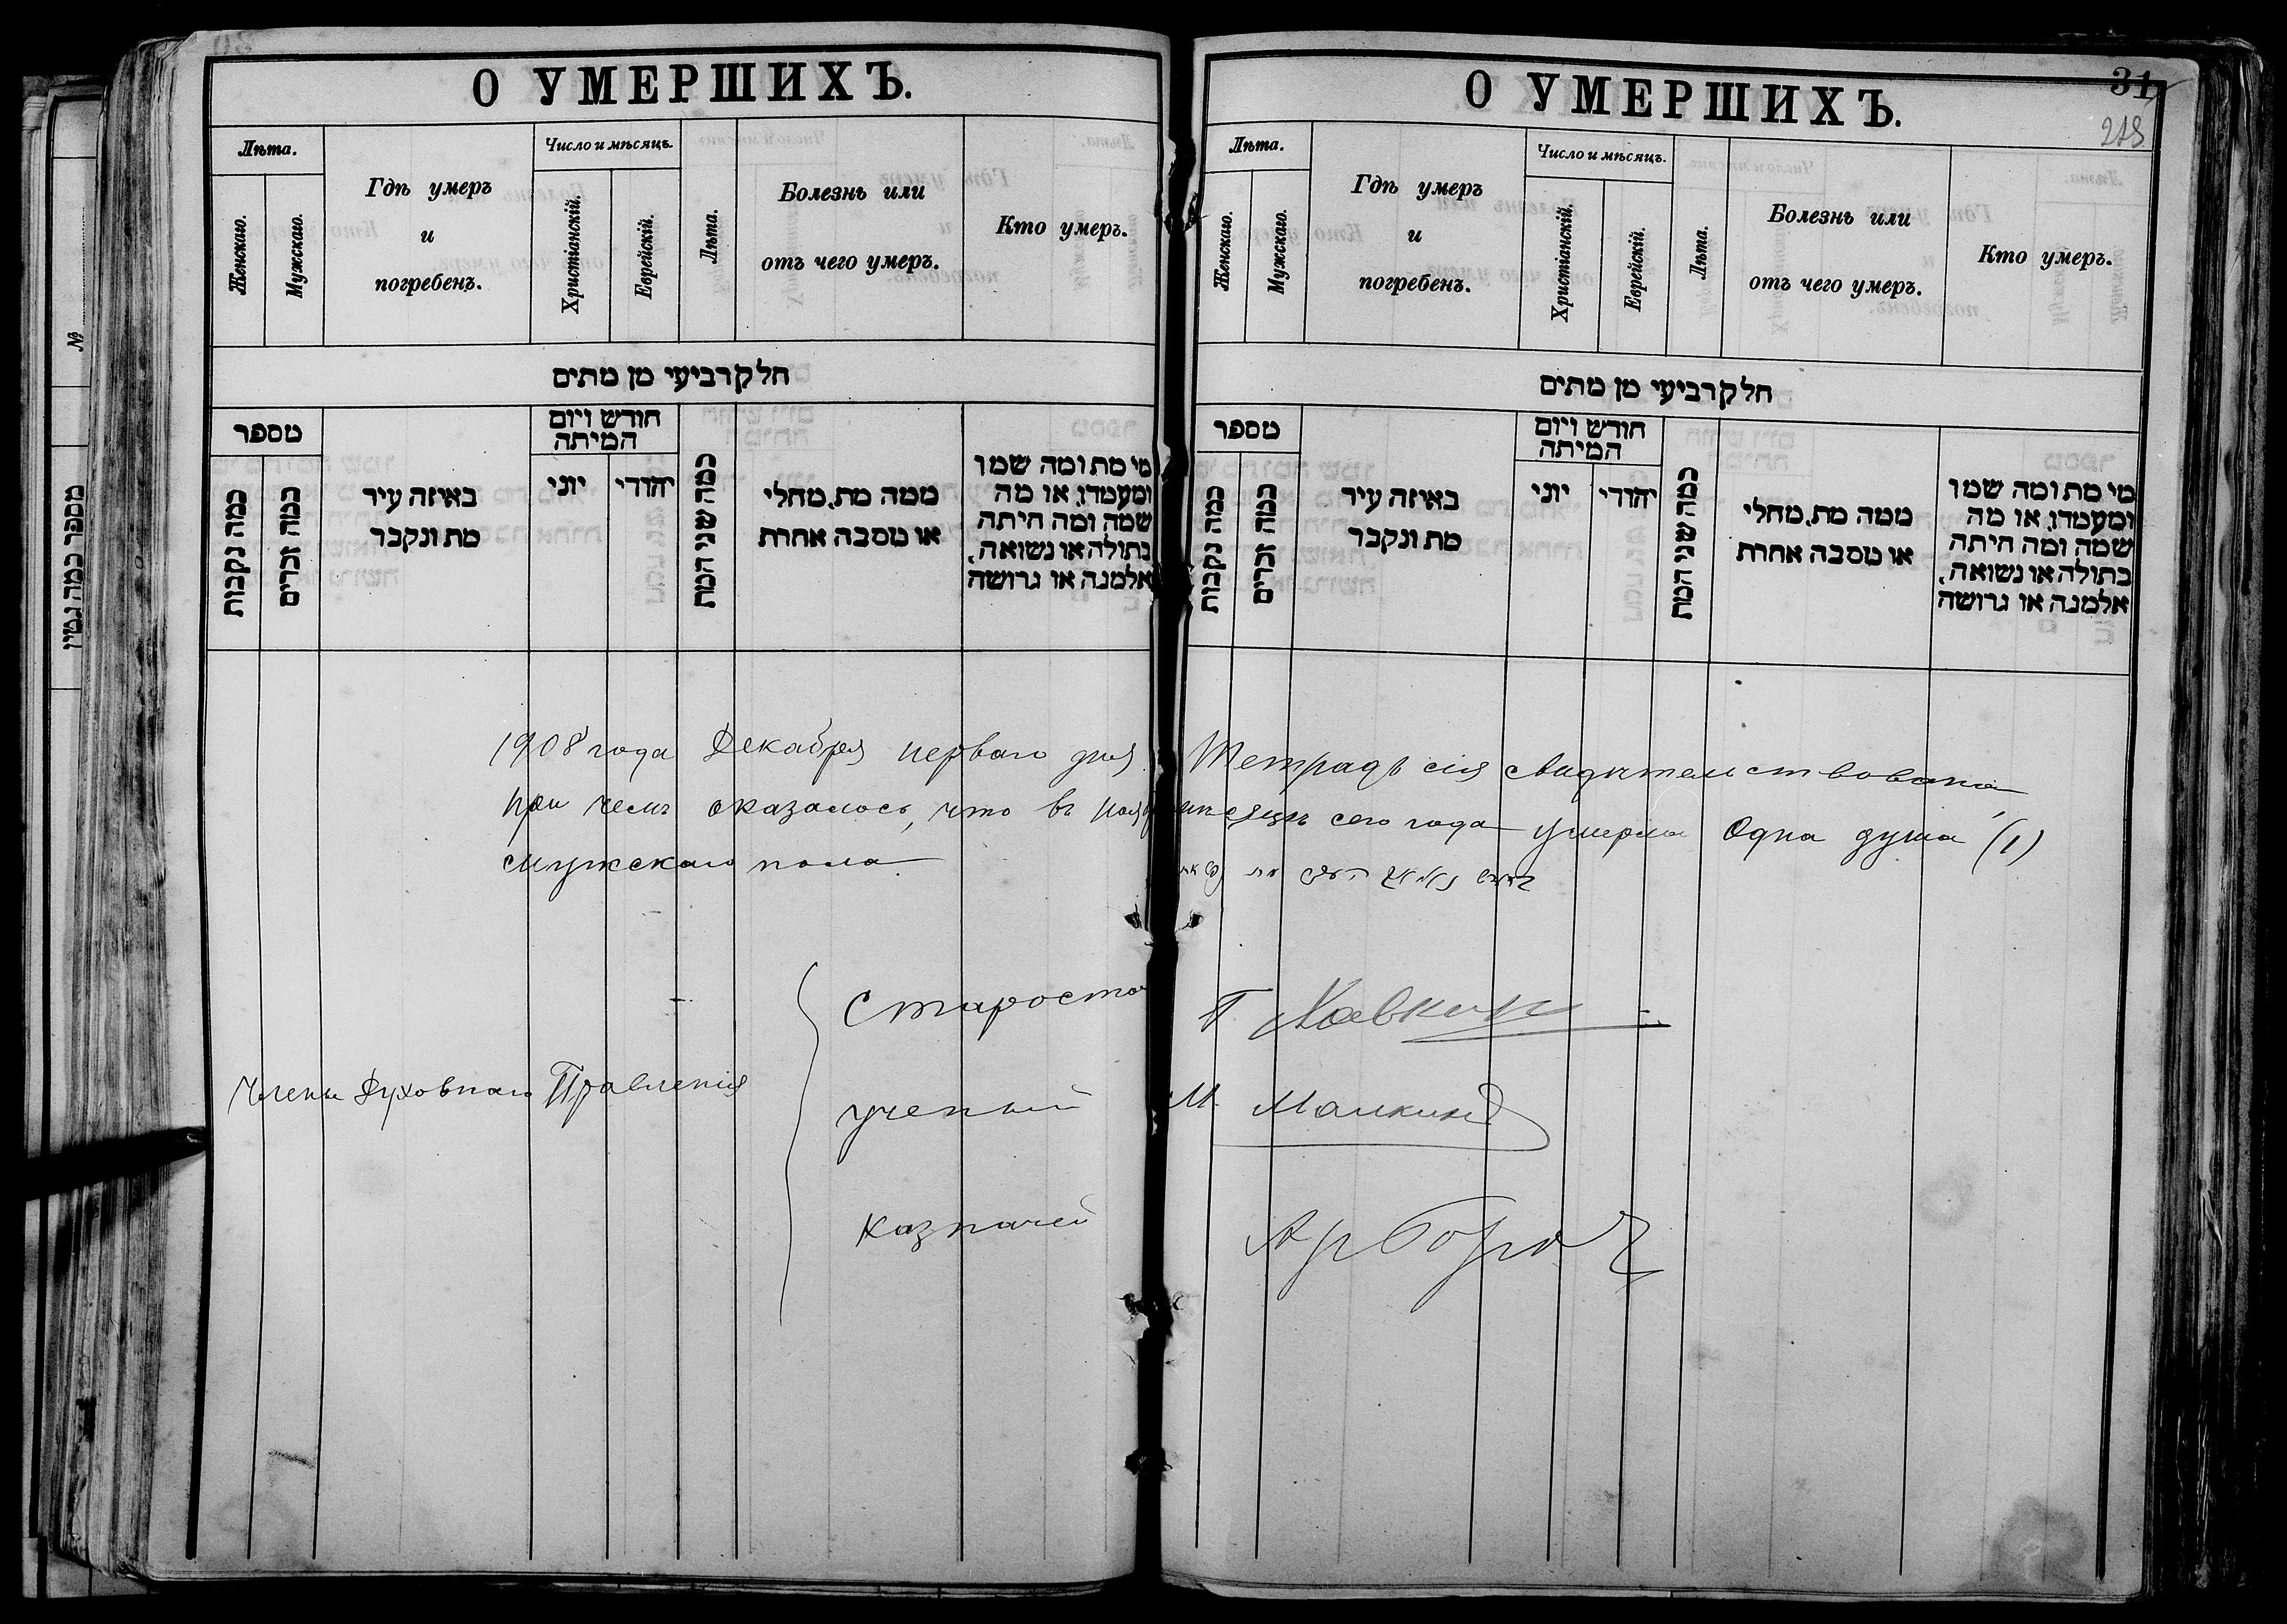 О УМЕРШИХЪ.
Лѣта.
Женскаго.
Мужскаго.
Гдѣ умеръ
и
погребенъ.
Число и мѣсяцъ.
Христіанскій.
Еврейскій.
Лѣта.
Болезнь или
отъ чего умеръ.
Кто умеръ.
חלק רביעי מן מתים
מספר
כמה נקבות
כמה זכרים
באיזה עיר
מת ונקבר
חודש ויום
המיתה
יוני
יהודי
כמה שני המת
ממה מת, מחלי
או מסבה אחרת
מי מת ומה שמו
ומעמדו, או מה
שמה ומה היתה
בתולה או נשואה,
אלמנה או גרושה
№
מספר כמה גטין
О УМЕРШИХЪ.
31
218
Лѣта.
Женскаго.
Мужскаго.
Гдѣ умеръ
и
погребенъ.
Число и мѣсяцъ.
Христіанскій.
Еврейскій.
Лѣта.
Болезнь или
отъ чего умеръ.
Кто умеръ.
חלק רביעי מן מתים
מספר
כמה נקבות
כמה זכרים
באיזה עיר
מת ונקבר
חודש ויום
המיתה
יוני
יהודי
כמה שני המת
ממה מת, מחלי
או מסבה אחרת
מי מת ומה שמו
ומעמדו, או מה
שמה ומה היתה
בתולה או נשואה,
אלמנה או גרושה
1908 года Декабря перваго дня Тетрадь сія свидѣтельствована,
при чемъ оказалось, что въ мѣсяцѣ сего года умерла Одна душа (1)
мужскаго пола
Члены Духовнаго Правленія
Староста Хавкин
ученый М. Малкинд
казначей